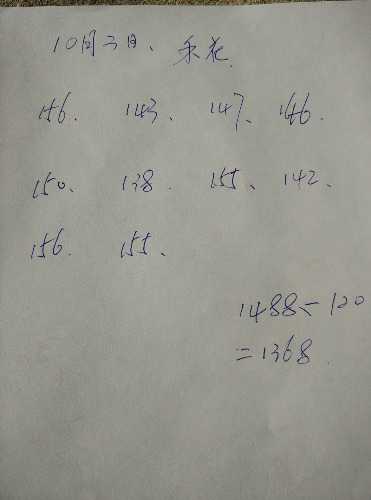 10月二日、采花.
156. 143、 147、 146.
150、 138. 155、 142、
156. 155、
1488-120
=1368.